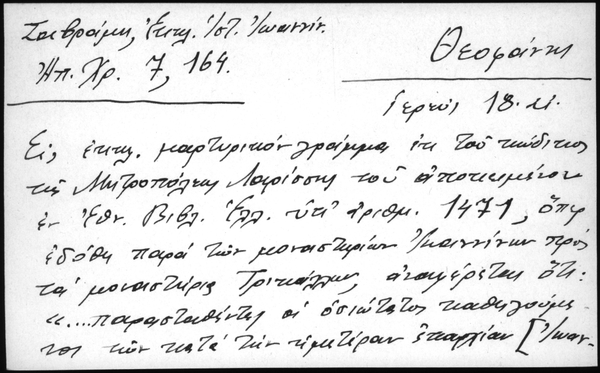 Σαβράμη, Ἐκκλ. Ἱστ. Ἰωαννίν.
Ἠπ. Χρ. 7, 164.
Θεοφάνης
Ἱερεύς 18. αἰ.
Εἰς ἐκκλ. μαρτυρικόν γράμμα ἐκ τοῦ κώδικος
τῆς Μητροπόλεως Λαρίσσης τοῦ ἀποκειμένου
ἐν Ἐθν. Βιβλ. Ἑλλ. ὑπ' ἀριθμ. 1471, ὅπερ
ἐδόθη παρά τῶν μοναστηρίων Ἰωαννίνων πρός
τά μοναστήρια Τρικάλων, ἀναφέρεται ὅτι:
«....παρασταθέντες οἱ ὁσιώτατοι καθηγούμε-
νοι τῶν κατά τήν ἡμετέραν ἐπαρχίαν [Ἰωαν-